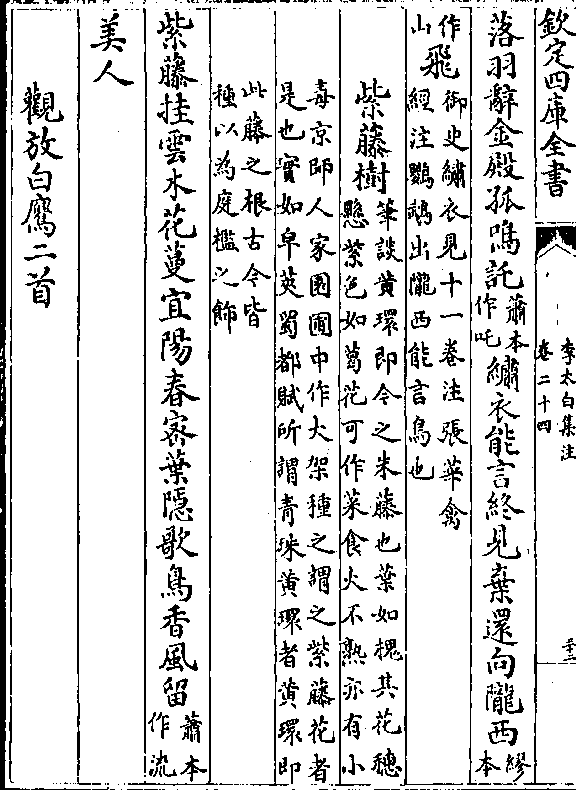 欽定四庫全書
李太白集注
卷二十四
三十二
落羽辭金殿孤鳴託蕭本作吒繡衣能言終見棄還向隴西繆本
作山飛御史繡衣見十一卷注張華禽
經注鸚鵡出隴西能言鳥也
紫藤樹筆談黃環即今之朱藤也葉如槐其花穗
懸紫色如葛花可作菜食火不熟亦有小
毒京師人家園圃中作大架種之謂之紫藤花者
是也實如皁莢蜀都賦所謂青珠黃環者黃環即
此藤之根古今皆
種以為庭檻之飾
紫藤挂雲木花蔓宜陽春密葉隱歌鳥香風留蕭本作流
美人
觀放白鷹二首